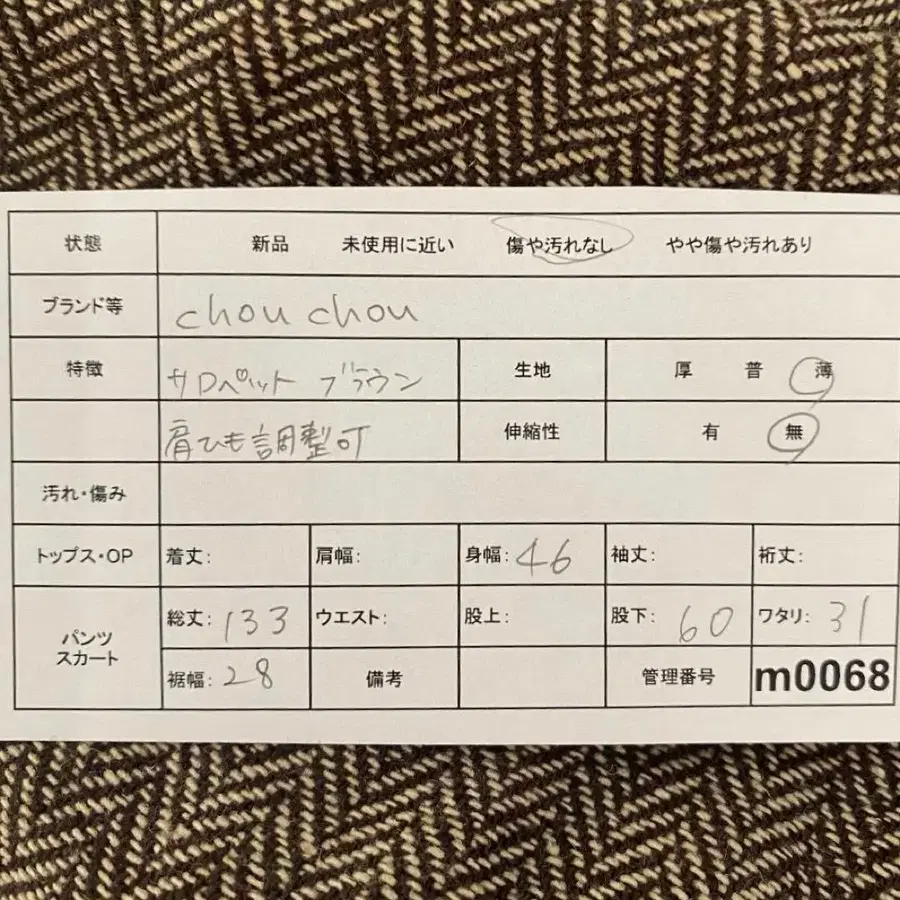 状態 新品 未使用に近い 傷や汚れなし やや傷や汚れあり
ブランド等 chou chou
特徴 サロペット ブラウン 生地 厚 普 薄
肩ひも調整可 伸縮性 有 無
汚れ・傷み
トップス・OP 着丈: 肩幅: 身幅: 46 袖丈: 裄丈:
パンツ スカート 総丈: 133 ウエスト: 股上: 股下: 60 ワタリ: 31
裾幅: 28 備考 管理番号 m0068